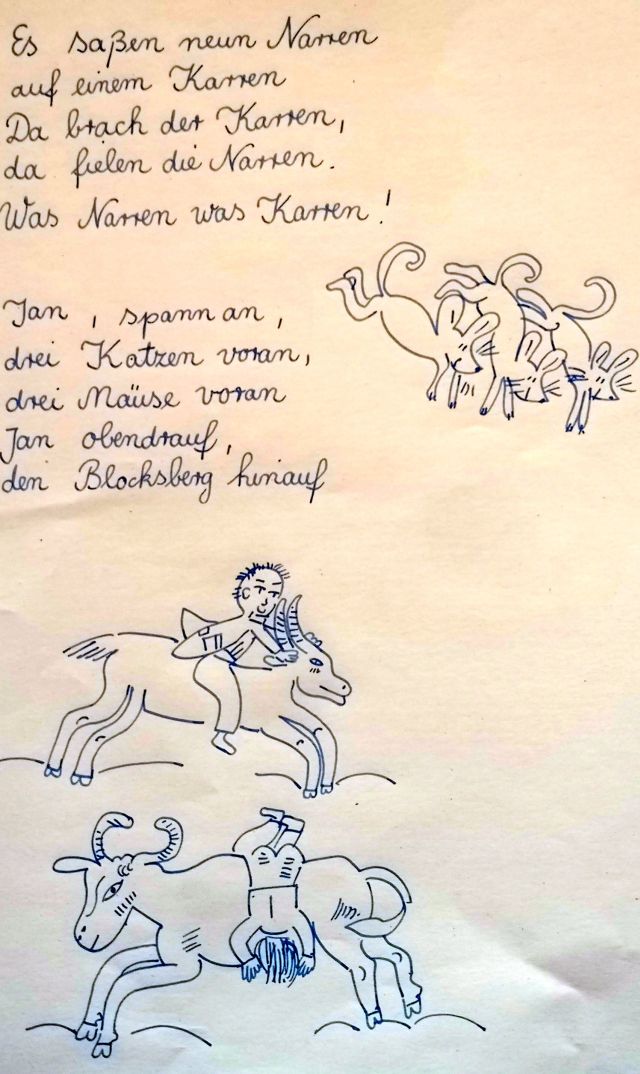 Es saßen neun Narren
auf einem Karren
Da brach der Karren,
da fielen die Narren.
Was Narren was Karren!
Jan, spann an,
drei Katzen voran,
drei Mäuse voran
Jan obendrauf,
den Blocksberg hinauf